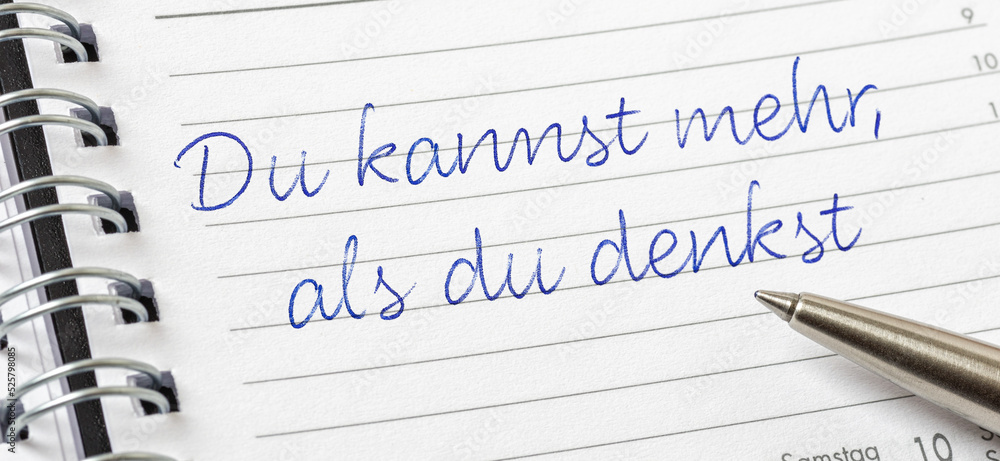 9
10
1
Du kannst mehr,
als du denkst
Samstag 10
S
S
Adobe Stock | #525798085